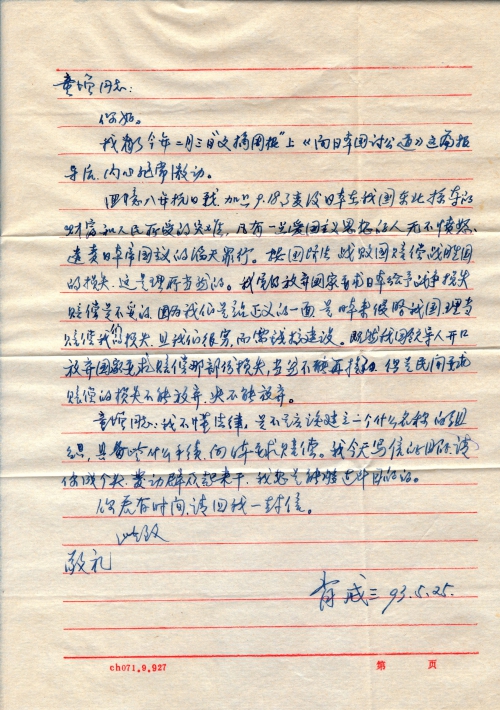 童增同志:
你好。
我看了今年二月三日"文摘周报"上《向日本国讨公道》这篇报
导后,内心非常激动。
回忆八年抗日战,加上9.18事变后日本在我国东北掠夺的
财富和人民所受的灾难,凡有一点爱国主义思想的人无不愤怒、
谴责日本帝国主义的滔天罪行。按国际法 战败国赔偿战胜国
的损失,这是理所当然的。我们放弃国家要求日本给予战争损失
赔偿是不妥的,因为我们是站正义的一面 是日本来侵略我国,理当
赔偿我们的损失,且我们很穷,而需谈搞建设。既然我国领导人开口
放弃国家要求赔偿那部份损失,当然不能再提,但是民间要求
赔偿的损失不能放弃,决不能放弃。
童增同志:我不懂法律,是不是应该建立一个什么名称的组
织,具备啥什么手续,向日本要求赔偿。我今天写信的目的,请
你成个头,发动群众起来干,我想是能够达中目的的。
你若有时间,请回我一封信。
此致
敬礼
肖成三 93.5.25.
ch071.9.927 第 页